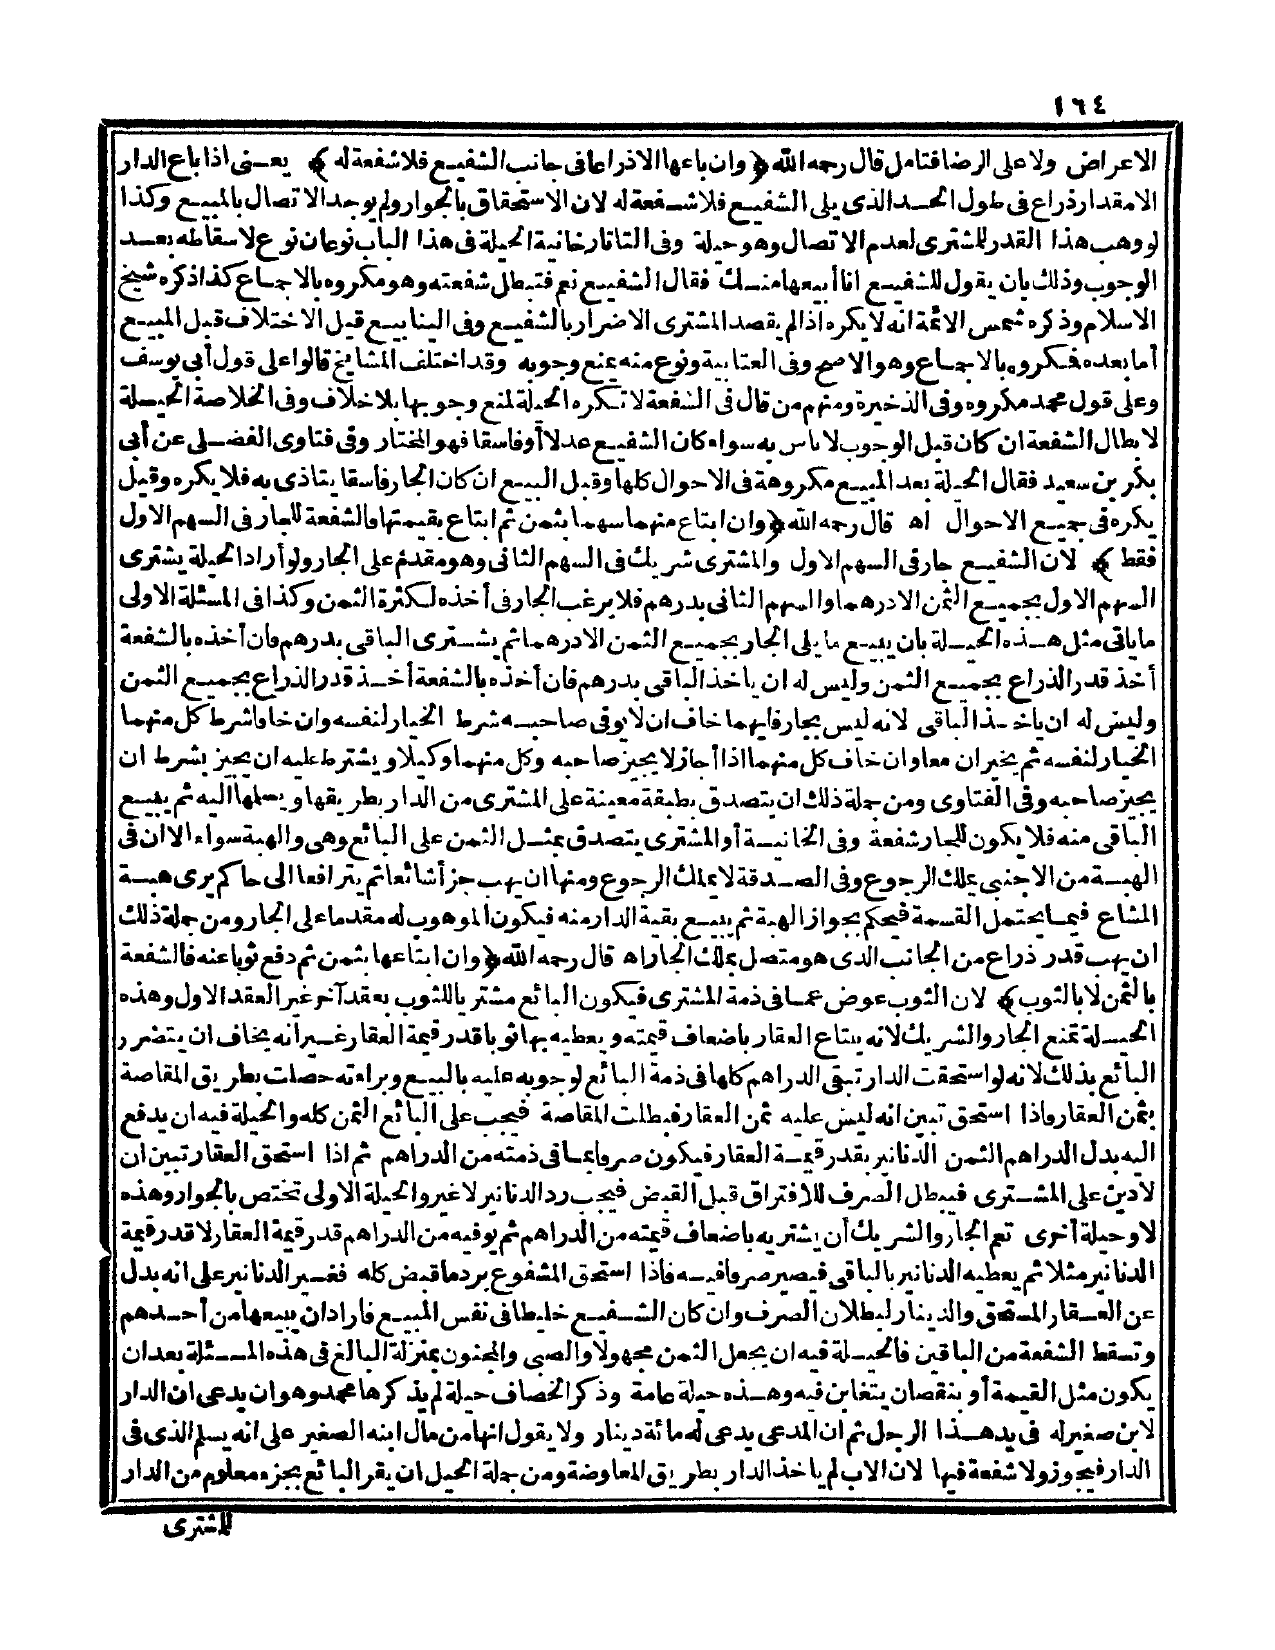 ١٦٤
الاعراض ولا على الرضا فتامل قال رحمه الله ﴿وان باعها الا ذراعا فى جانب الشفيع فلا شفعة له﴾ يعنى اذا باع الدار
الا مقدار ذراع فى طول الحد الذى يلى الشفيع فلا شفعة له لان الاستحقاق بالجوار ولم يوجد الاتصال بالمبيع وكذا
لو وهب هذا القدر للمشترى لعدم الاتصال وهو حيلة وفى التاتارخانية الحيلة فى هذا الباب نوعان نوع لاسقاطه بعد
الوجوب وذلك بان يقول للشفيع انا أبيعها منك فقال الشفيع نعم فتبطل شفعته وهو مكروه بالاجماع كذا ذكره شيخ
الاسلام وذكره شمس الائمة انه لا يكره اذا لم يقصد المشترى الاضرار بالشفيع وفى الينابيع قيل الاختلاف قبل المبيع
أما بعده فمكروه بالاجماع وهو الاصح وفى العتابية ونوع منه يمنع وجوبه وقد اختلف المشايخ قالوا على قول أبى يوسف
وعلى قول محمد مكروه وفى الذخيرة ومنهم من قال فى الشفعة لا تكره الحيلة لمنع وجوبها بلا خلاف وفى الخلاصة الحيلة
لابطال الشفعة ان كان قبل الوجوب لا باس به سواء كان الشفيع عدلا أو فاسقا فهو المختار وفى فتاوى الفضلى عن أبى
بكر بن سعيد فقال الحيلة بعد المبيع مكروهة فى الاحوال كلها وقبل البيع ان كان الجار فاسقا يتاذى به فلا يكره وقيل
يكره فى جميع الاحوال اه قال رحمه الله ﴿وان ابتاع منها سهما بثمن ثم ابتاع بقيمتها فالشفعة للجار فى السهم الاول
فقط﴾ لان الشفيع جار فى السهم الاول والمشترى شريك فى السهم الثانى وهو مقدم على الجار ولو أراد الحيلة يشترى
السهم الاول بجميع الثمن الا درهما والسهم الثانى بدرهم فلا يرغب الجار فى أخذه لكثرة الثمن وكذا فى المسئلة الاولى
ما ياتى مثل هذه الحيلة بان يبيع ما يلى الجار بجميع الثمن الا درهما ثم يشترى الباقى بدرهم فان أخذه بالشفعة
أخذ قدر الذراع بجميع الثمن وليس له ان ياخذ الباقى بدرهم فان أخذه بالشفعة أخذ قدر الذراع بجميع الثمن
وليس له ان ياخذ الباقى لانه ليس بجار فايهما خاف ان لا يوفى صاحبه شرط الخيار لنفسه وان خافا شرط كل منهما
الخيار لنفسه ثم يخيران معا وان خاف كل منهما اذا أجاز لا يجيز صاحبه وكل منهما وكيلا ويشترط عليه ان يجيز بشرط ان
يجيز صاحبه وفى الفتاوى ومن جملة ذلك ان يتصدق بطبقة معينة على المشترى من الدار بطريقها ويسلمها اليه ثم يبيع
الباقى منه فلا يكون للجار شفعة وفى الخانية أو المشترى يتصدق بمثل الثمن على البائع وهى والهبة سواء الا ان فى
الهبة من الاجنبى يملك الرجوع وفى الصدقة لا يملك الرجوع ومنها ان يهب جزأ شائعا ثم يترافعا الى حاكم يرى هبة
المشاع فيما يحتمل القسمة فيحكم بجواز الهبة ثم يبيع بقية الدار منه فيكون الموهوب له مقدما على الجار ومن جملة ذلك
ان يهب قدر ذراع من الجانب الذى هو متصل بملك الجار اه قال رحمه الله ﴿وان ابتاعها بثمن ثم دفع ثوبا عنه فالشفعة
بالثمن لا بالثوب﴾ لان الثوب عوض عما فى ذمة المشترى فيكون البائع مشتر باللثوب بعقد آخر غير العقد الاول وهذه
الحيلة تمنع الجار والشريك لانه يبتاع العقار باضعاف قيمته ويعطيه بها ثوبا قدر قيمة العقار غير أنه يخاف ان يتضرر
البائع بذلك لانه لو استحقت الدار تبقى الدراهم كلها فى ذمة البائع لوجوبه عليه بالبيع وبراءته حصلت بطريق المقاصة
بثمن العقار واذا استحق تبين انه ليس عليه ثمن العقار فبطلت المقاصة فيجب على البائع الثمن كله والحيلة فيه ان يدفع
اليه بدل الدراهم الثمن الدنانير بقدر قيمة العقار فيكون صرفا عما فى ذمته من الدراهم ثم اذا استحق العقار تبين ان
لا دين على المشترى فيبطل الصرف للافتراق قبل القبض فيجب رد الدنانير لا غير والحيلة الاولى تختص بالجوار وهذه
لا وحيلة أخرى تعم الجار والشريك أن يشتريه باضعاف قيمته من الدراهم ثم يوفيه من الدراهم قدر قيمة العقار لا قدر قيمة
الدنانير مثلا ثم يعطيه الدنانير بالباقى فيصير صرفا فيه فاذا استحق المشفوع يرد ما قبض كله فغير الدنانير على انه بدل
عن العقار المستحق والدينار لبطلان الصرف وان كان الشفيع خليطا فى نفس المبيع فاراد ان يبيعها من أحدهم
وتسقط الشفعة من الباقين فالحيلة فيه ان يجعل الثمن مجهولا والصبى والمجنون بمنزلة البالغ فى هذه المسئلة بعد ان
يكون مثل القيمة أو بنقصان يتغابن فيه وهذه حيلة عامة وذكر الخصاف حيلة لم يذكرها محمد وهو ان يدعى ان الدار
لابن صغير له فى يد هذا الرجل ثم ان المدعى يدعى له مائة دينار ولا يقول انها من مال ابنه الصغير على انه يسلم الذى فى
الدار فيجوز ولا شفعة فيها لان الاب لم ياخذ الدار بطريق المعاوضة ومن جملة الحيل ان يقر البائع بجزء معلوم من الدار
للمشترى